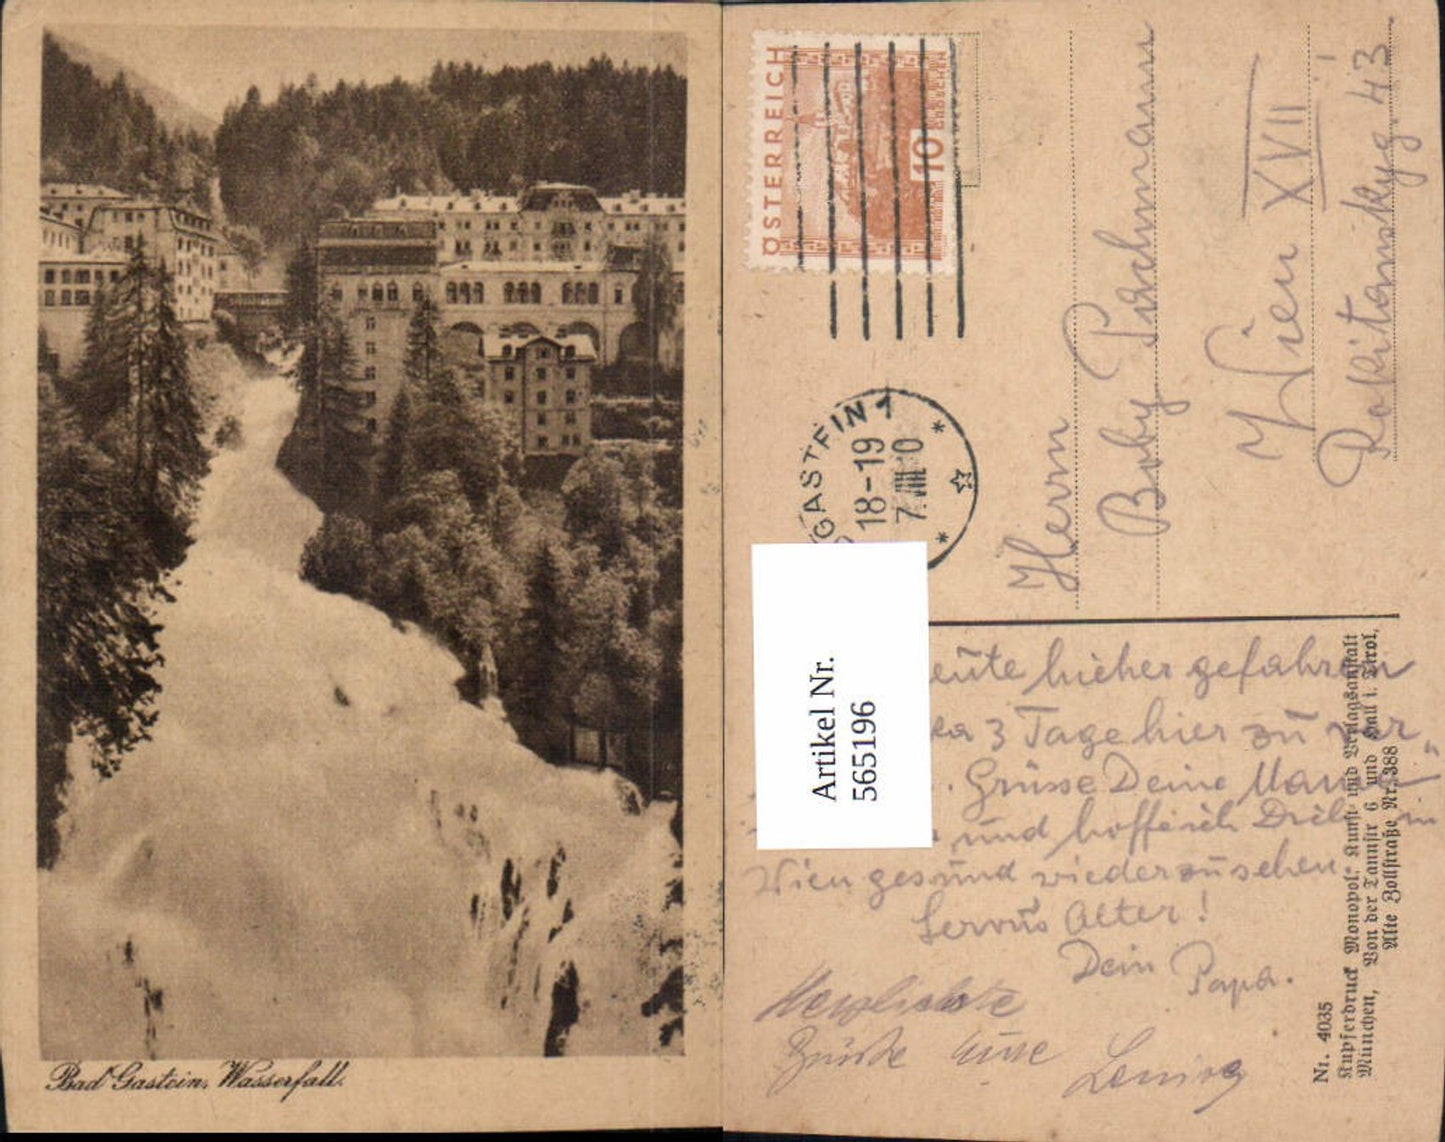 Bad Gastein, Wasserfall.
ÖSTERREICH
10
GROSCHEN
GASTEIN 1
18-19
7.VIII.30
Herrn
Boby Pachmann
Wien XVII
Rokitanskyg. 43
Artikel Nr.
565196
heute hieher gefahren
3 Tage hier zu ver
Grüsse Deine Mama
und hoffe ich Dich in
Wien gesund wiederzusehen
Servus Alter!
Dein Papa.
Herzlichste
Grüsse
Nr. 4035
Kupferdruck Monopol: Kunst- und Verlagsanstalt
München, Von der Tannstr 6 und Hall i. Tirol,
Alte Zollstraße Nr. 388